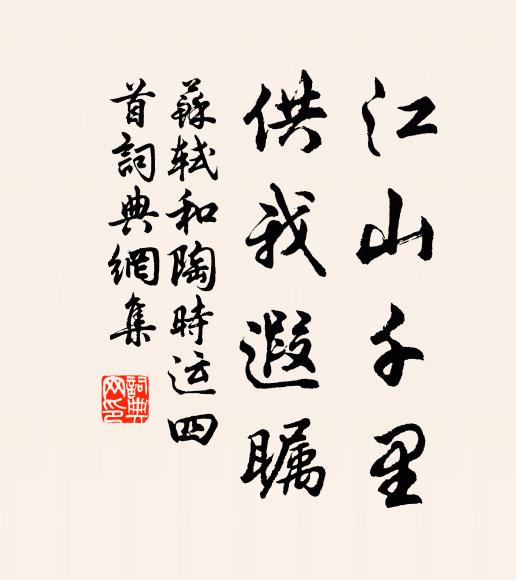 江山千里
供我遐瞩
蘇軾和陶時运四
首詞典網集
詞典
网印